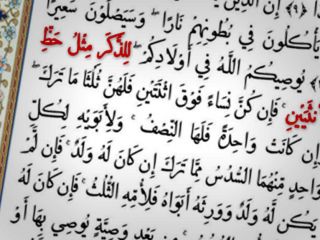 ﴿٩﴾ إِنَّ الَّذِينَ
يَأْكُلُونَ فِي بُطُونِهِمْ نَارًا ۖ وَسَيَصْلَوْنَ سَعِيرًا
يُوصِيكُمُ اللَّهُ فِي أَوْلَادِكُمْ ۖ لِلذَّكَرِ مِثْلُ حَظِّ
نثَيَيْنِ ۚ فَإِن كُنَّ نِسَاءً فَوْقَ اثْنَتَيْنِ فَلَهُنَّ ثُلُثَا مَا تَرَكَ ۖ
إِن كَانَتْ وَاحِدَةً فَلَهَا النِّصْفُ ۚ وَلِأَبَوَيْهِ لِكُلِّ
وَاحِدٍ مِّنْهُمَا السُّدُسُ مِمَّا تَرَكَ إِن كَانَ لَهُ وَلَدٌ ۚ فَإِن لَّمْ
يَكُن لَّهُ وَلَدٌ وَوَرِثَهُ أَبَوَاهُ فَلِأُمِّهِ الثُّلُثُ ۚ فَإِن كَانَ لَهُ
مِن بَعْدِ وَصِيَّةٍ يُوصِي بِهَا أَوْ